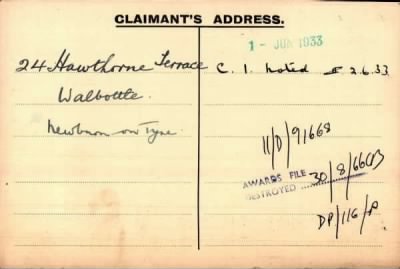 CLAIMANT'S ADDRESS.
1 - JUN 1933
24 Hawthorne Terrace
C. I. noted 2.6.33
Walbottle.
Newburn on Tyne.
11/D/91668
AWARDS FILE
DESTROYED 30/8/66
DP/116/